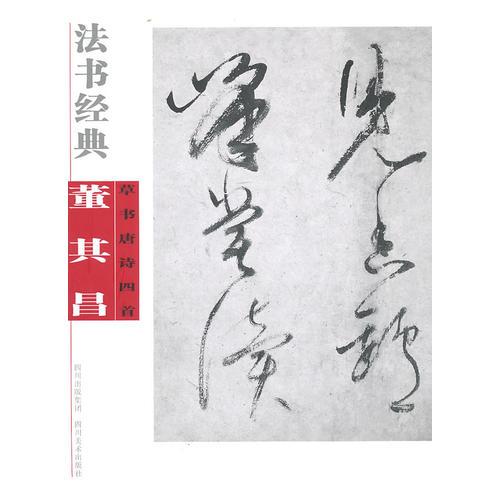 法书经典
董其昌
草书唐诗四首
四川出版集团 四川美术出版社
見香爐
峰嘗讀